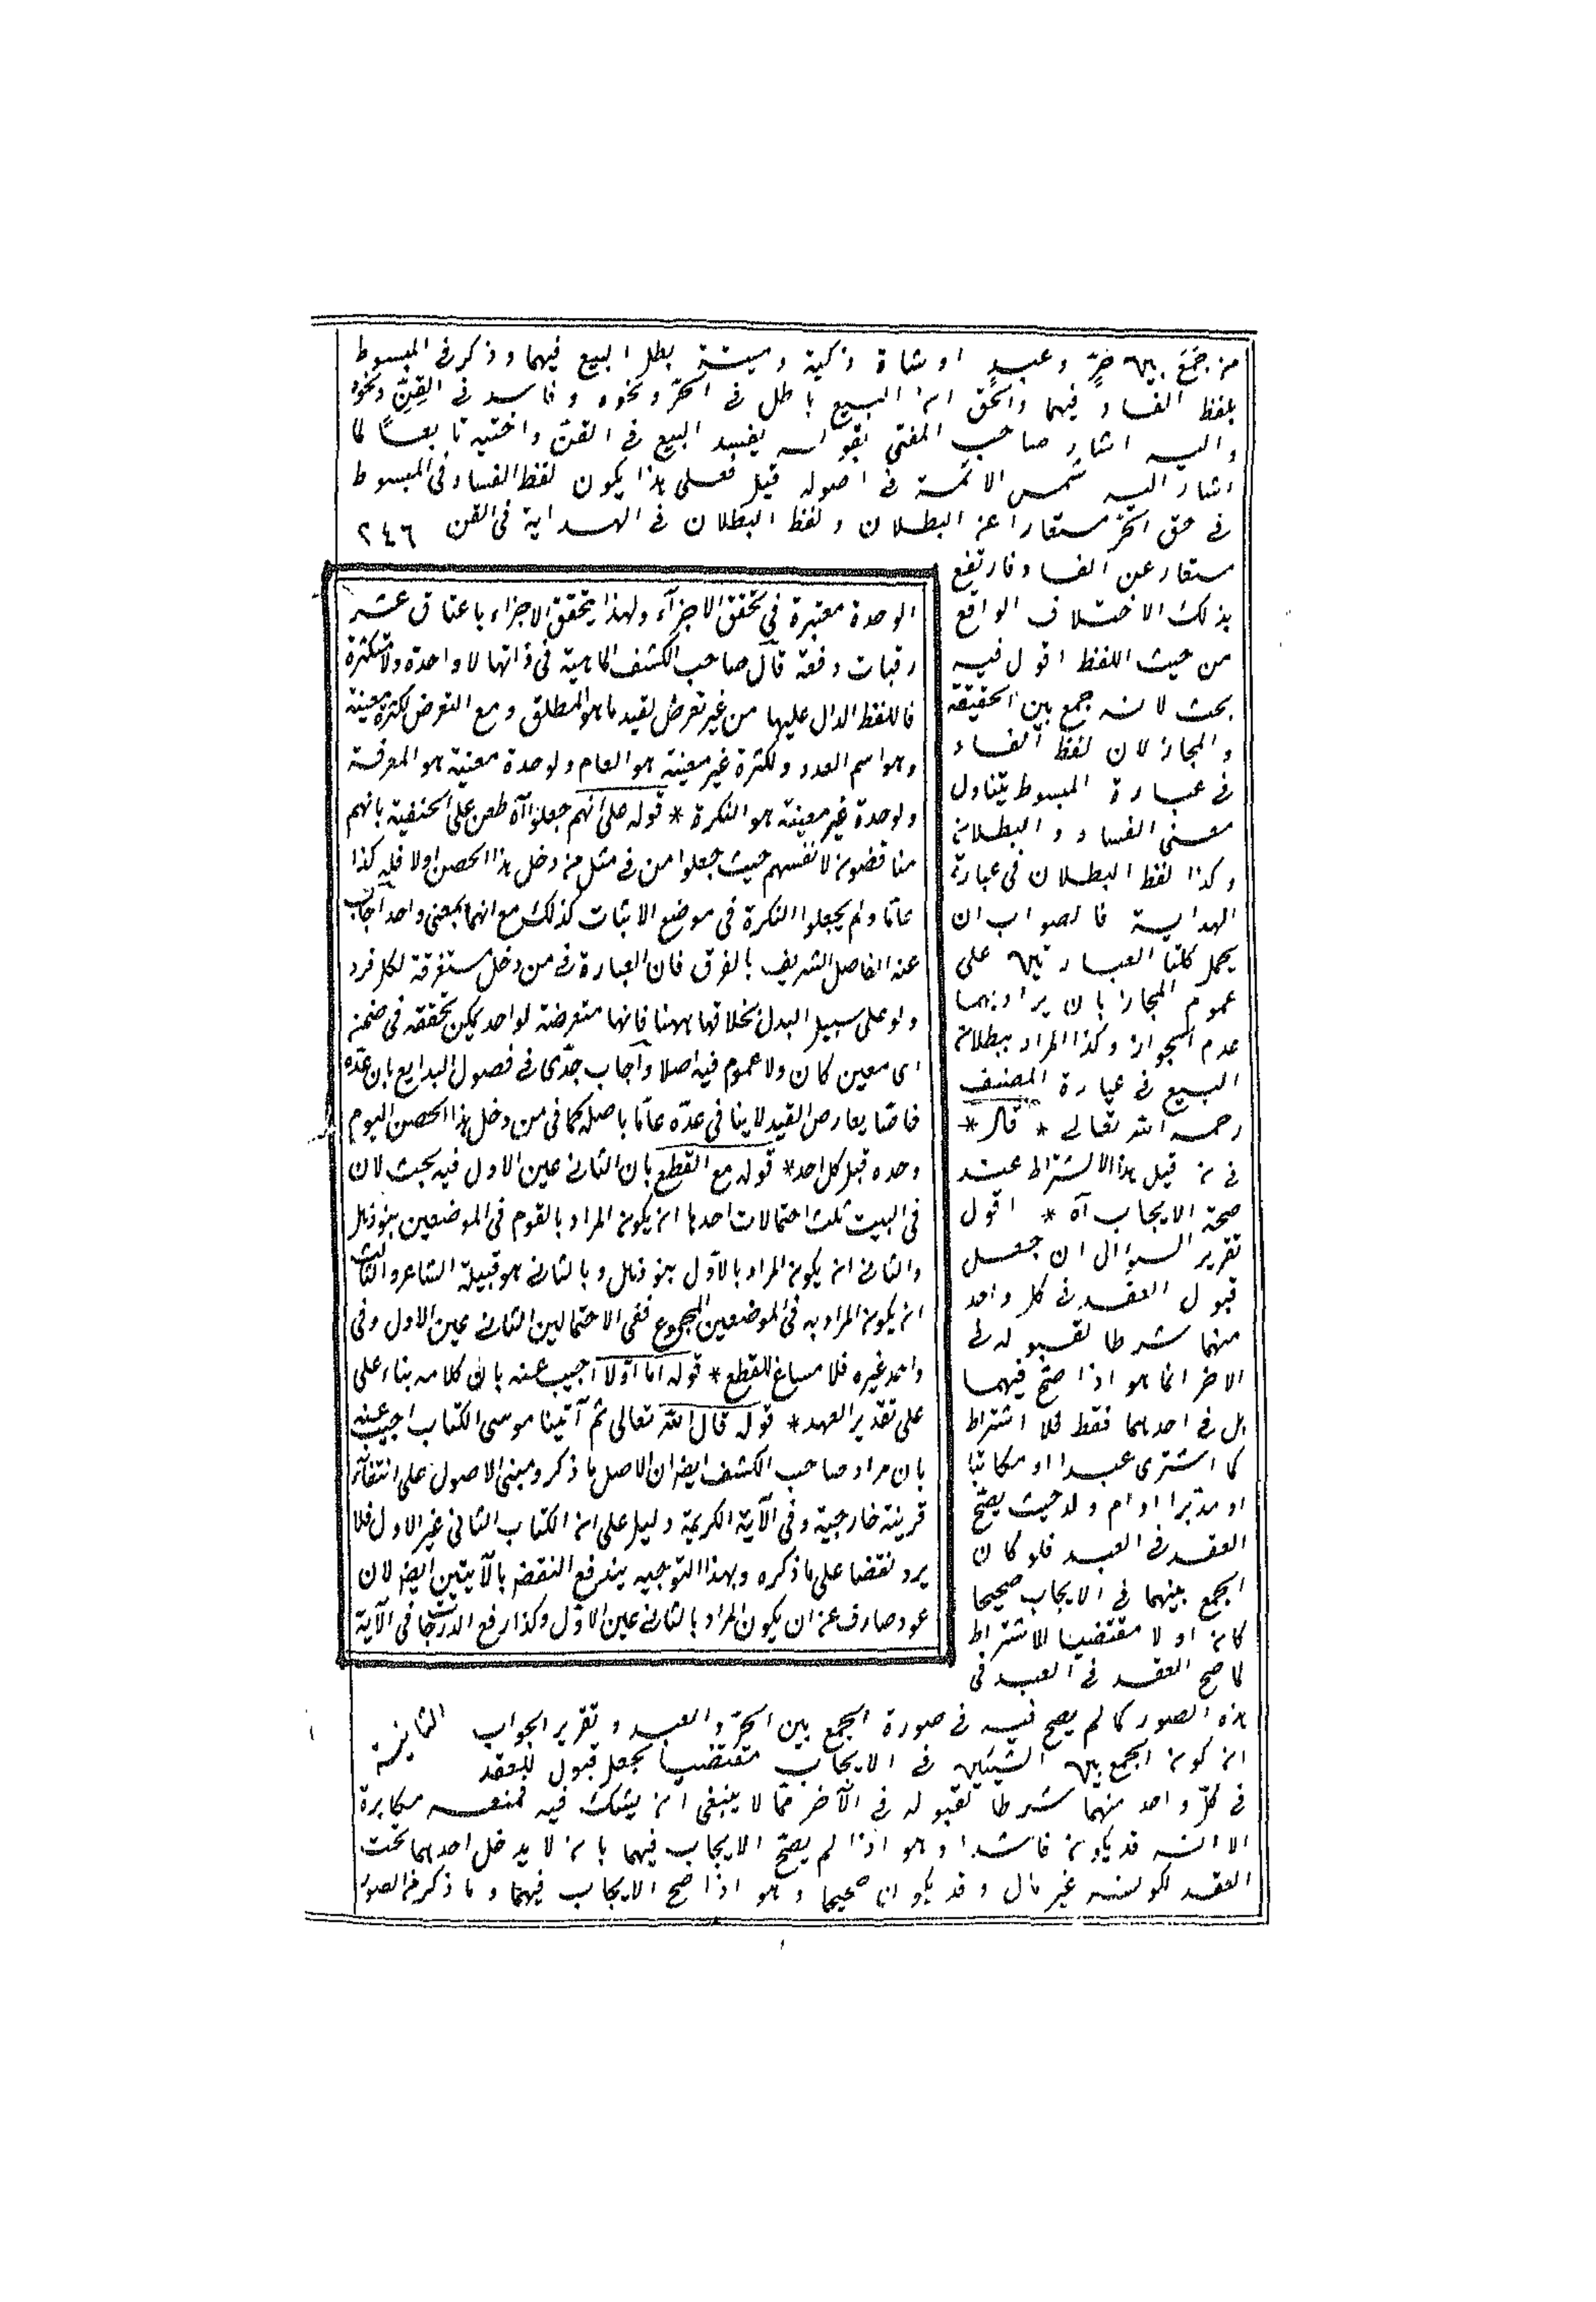 من جَمَعَ بين حرٍّ وعبدٍ او شاة ذكية وميتة بطل البيع فيهما وذكر فى المبسوط
بلفظ الفساد فيهما والحق ان البيع باطل فى الحرّ ونحوه وفاسد فى القِنِّ ونحوه
واليه اشار صاحب المغنى بقوله يفسد البيع فى القنّ واختيه تابعًا لما
اشار اليه شمس الائمة فى اصوله قيل فعلى هذا يكون لفظ الفساد فى المبسوط
فى حق الحرّ مستعارا عن البطلان ولفظ البطلان فى الهداية فى القن ٢٤٦
مستعار عن الفساد فارتفع
بذلك الاختلاف الواقع
من حيث اللفظ اقول فيه
بحث لانه جمع بين الحقيقة
والمجاز لان لفظ الفساد
فى عبارة المبسوط يتناول
معنى الفساد والبطلان
وكذا لفظ البطلان فى عبارة
الهداية فالصواب ان
يحمل كلتا العبارتين على
عموم المجاز بان يراد بهما
عدم الجواز وكذا المراد ببطلان
البيع فى عبارة المصنف
رحمه الله تعالى * قال *
فان قيل هذا الاشتراط عند
صحة الايجاب آه * اقول
تقرير السؤال ان جعل
قبول العقد فى كل واحد
منهما شرطا لقبوله فى
الاخر انما هو اذا صحّ فيهما
بل فى احدهما فقط فلا اشتراط
كما اشترى عبدا او مكاتبا
او مدبرا او ام ولد حيث يصحّ
العقد فى العبد فلو كان
الجمع بينهما فى الايجاب صحيحا
كان او لا مقتضيا للاشتراط
لما صح العقد فى العبد فى
هذه الصور كما لم يصح فيه فى صورة الجمع بين الحرّ والعبد وتقرير الجواب
ان كون الجمع بين الشيئين فى الايجاب مقتضيا لجعل قبول العقد
فى كلّ واحد منهما شرطا لقبوله فى الآخر ممّا لا ينبغى ان يشك فيه فمنعه مكابرة
الا انه قد يكون فاسدا وهو اذا لم يصحّ الايجاب فيهما بان لا يدخل احدهما تحت
العقد لكونه غير مال وقد يكون صحيحا وهو اذا صح الايجاب فيهما وما ذكر من الصور
الثانية
الوحدة معتبرة فى تحقق الاجزآء ولهذا يتحقق الاجزاء باعتاق عشر
رقبات دفعة قال صاحب الكشف الماهية فى ذاتها لا واحدة ولا متكثرة
فاللفظ الدال عليها من غير تعرض لقيد ما هو المطلق ومع التعرض لكثرة معينة
وهو اسم العدد ولكثرة غير معينة هو العام ولوحدة معينة هو المعرفة
ولوحدة غير معينة هو النكرة * قوله على انهم جعلوا آه طعن على الحنفية بانهم
مناقضون لانفسهم حيث جعلوا من فى مثل من دخل هذا الحصن اولا فله كذا
عامّا ولم يجعلوا النكرة فى موضع الاثبات كذلك مع انهما بمعنى واحد اجاب
عنه الفاضل الشريف بالفرق فان العبارة فى من دخل مستغرقة لكل فرد
ولو على سبيل البدل بخلافها ههنا فانها متعرضة لواحد يمكن تحققه فى ضمن
اى معين كان ولا عموم فيه اصلا واجاب جدّى فى فصول البدايع بان عدّه
خاصّا يعارض القيد لا ينافى عدّه عامّا باصله كما فى من دخل هذا الحصن اليوم
وحده قبل كل احد * قوله مع القطع بان الثانى عين الاول فيه بحث لان
فى البيت ثلث احتمالات احدها ان يكون المراد بالقوم فى الموضعين بنو ذهل
والثانى ان يكون المراد بالاول بنو ذهل وبالثانى هو قبيلة الشاعر والثالث
ان يكون المراد به فى الموضعين المجموع ففى الاحتمالين الثانى عين الاول وفى
واحد غيره فلا مساغ للقطع * قوله اما اوّلا اجيب عنه بان كلامه بناء على
على تقدير العهد * قوله قال الله تعالى ثم آتينا موسى الكتاب اجيب عنه
بان مراد صاحب الكشف ايضا ان الاصل ما ذكر ومبنى الاصول على انتفآء
قرينة خارجية وفى الآية الكريمة دليل على ان الكتاب الثانى غير الاول فلا
يرد نقضا على ما ذكره وبهذا التوجيه يندفع النقض بالآيتين ايضا لان
عود صارف عن ان يكون المراد بالثانى عين الاوّل وكذا رفع الدرجات فى الآية